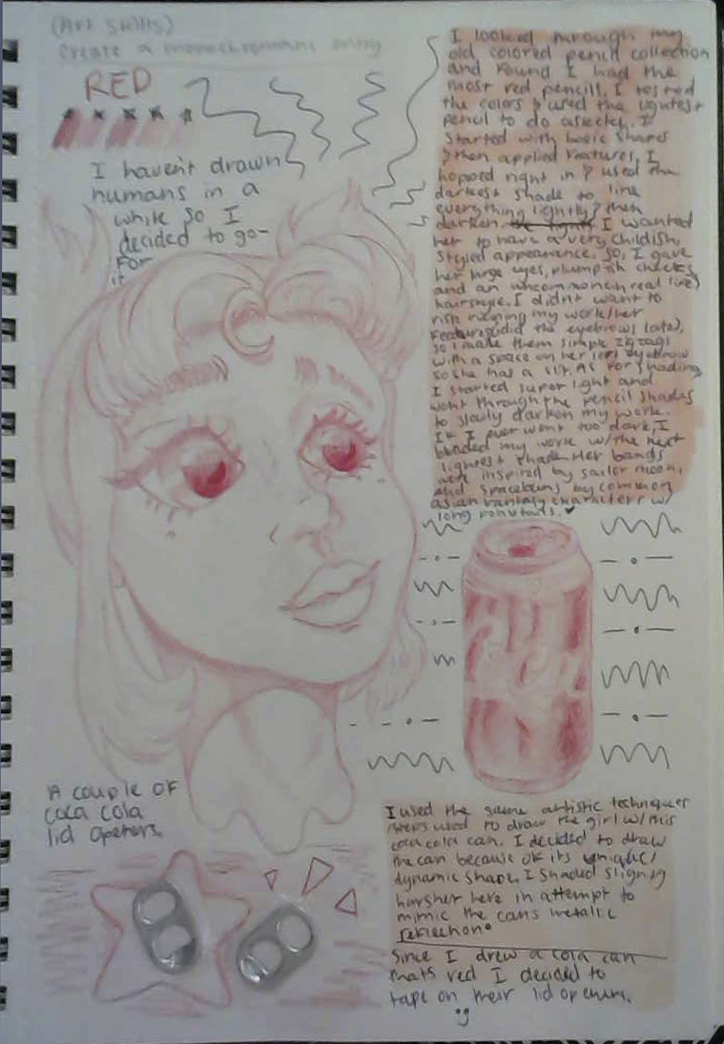 (Art Skills)
Create a monochromatic
RED
I haven't drawn
humans in a
while so I
decided to go-
For
it
I looked through my
old colored pencil collection
and found I had the
most red pencils. I tested
the colors & used the lightest
pencil to do a sketch. I
started with basic shapes
then applied features. I
hopped right in & used the
darkest shade to line
everything lightly & then
darken. I wanted
her to have a very childish,
styled appearance, so, I gave
her large eyes, plumpish cheeks
and an uncommon(in real life)
hairstyle. I didn't want to
risk ruining my work/her
features(did the eyebrows late),
so I made them simple zigzags
with a space on her left eyebrow
so she has a slit. As for shading
I started super light and
went through the pencil shades
to slowly darken my work.
If I ever went too dark, I
blended my work w/the next
lightest shade. Her bands
were inspired by sailor moon,
and spacebuns by common
asian fantasy characters w/
long ponytails.
A couple of
coca cola
lid openers.
I used the same artistic techniques
used to draw the girl w/this
coca cola can. I decided to draw
the can because of its unique/
dynamic shape. I shaded slightly
harsher here in attempt to
mimic the cans metallic
reflection.
Since I drew a cola can
thats red I decided to
tape on their lid openers.